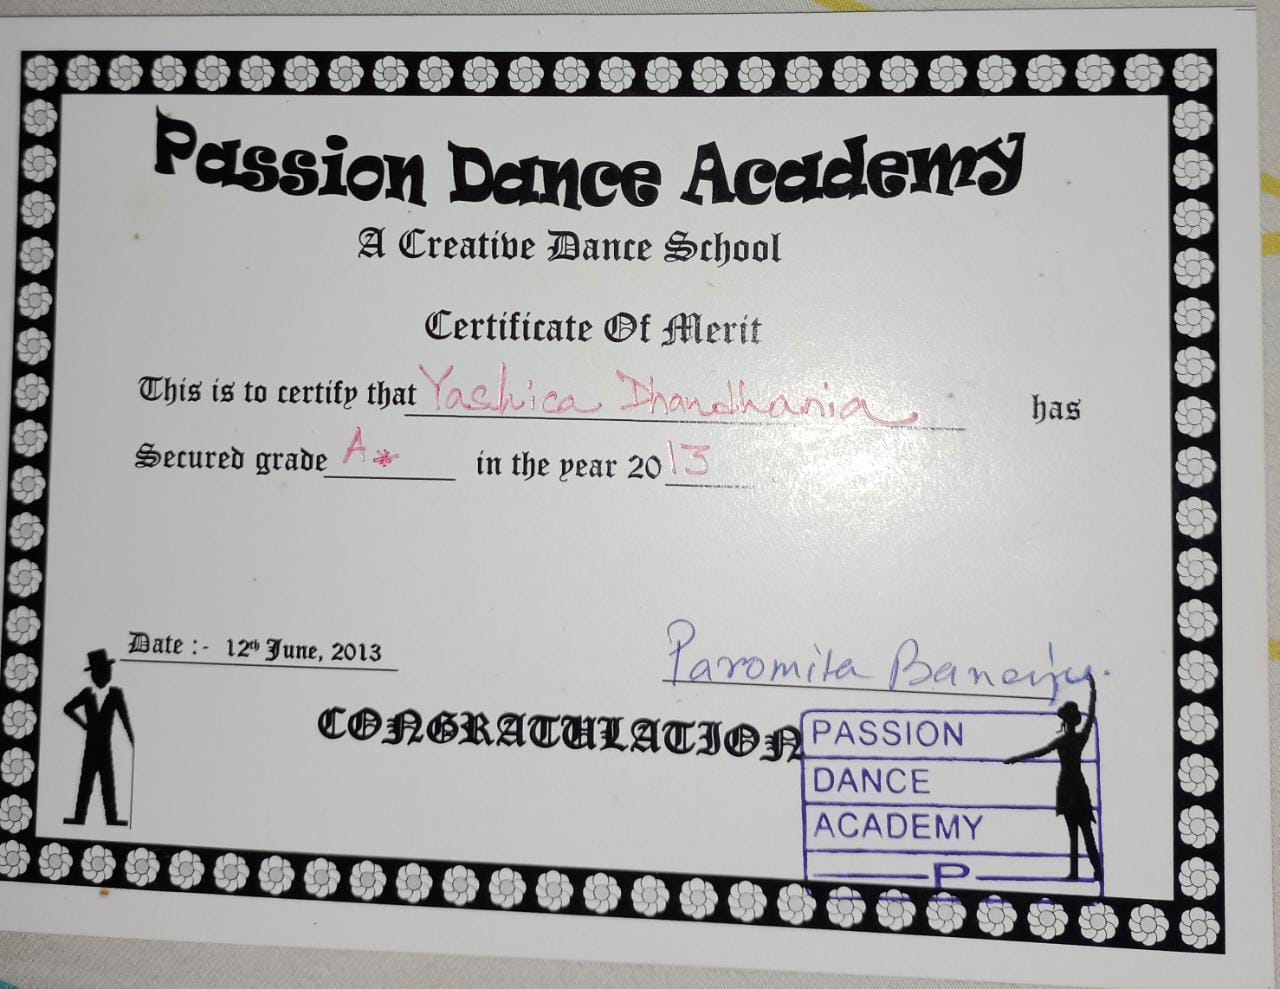 Passion Dance Academy
A Creative Dance School
Certificate Of Merit
This is to certify that Yashica Dhandhania has
Secured grade A* in the year 2013
Date :- 12th June, 2013
Paromita Banerjee.
CONGRATULATION
PASSION
DANCE
ACADEMY
P